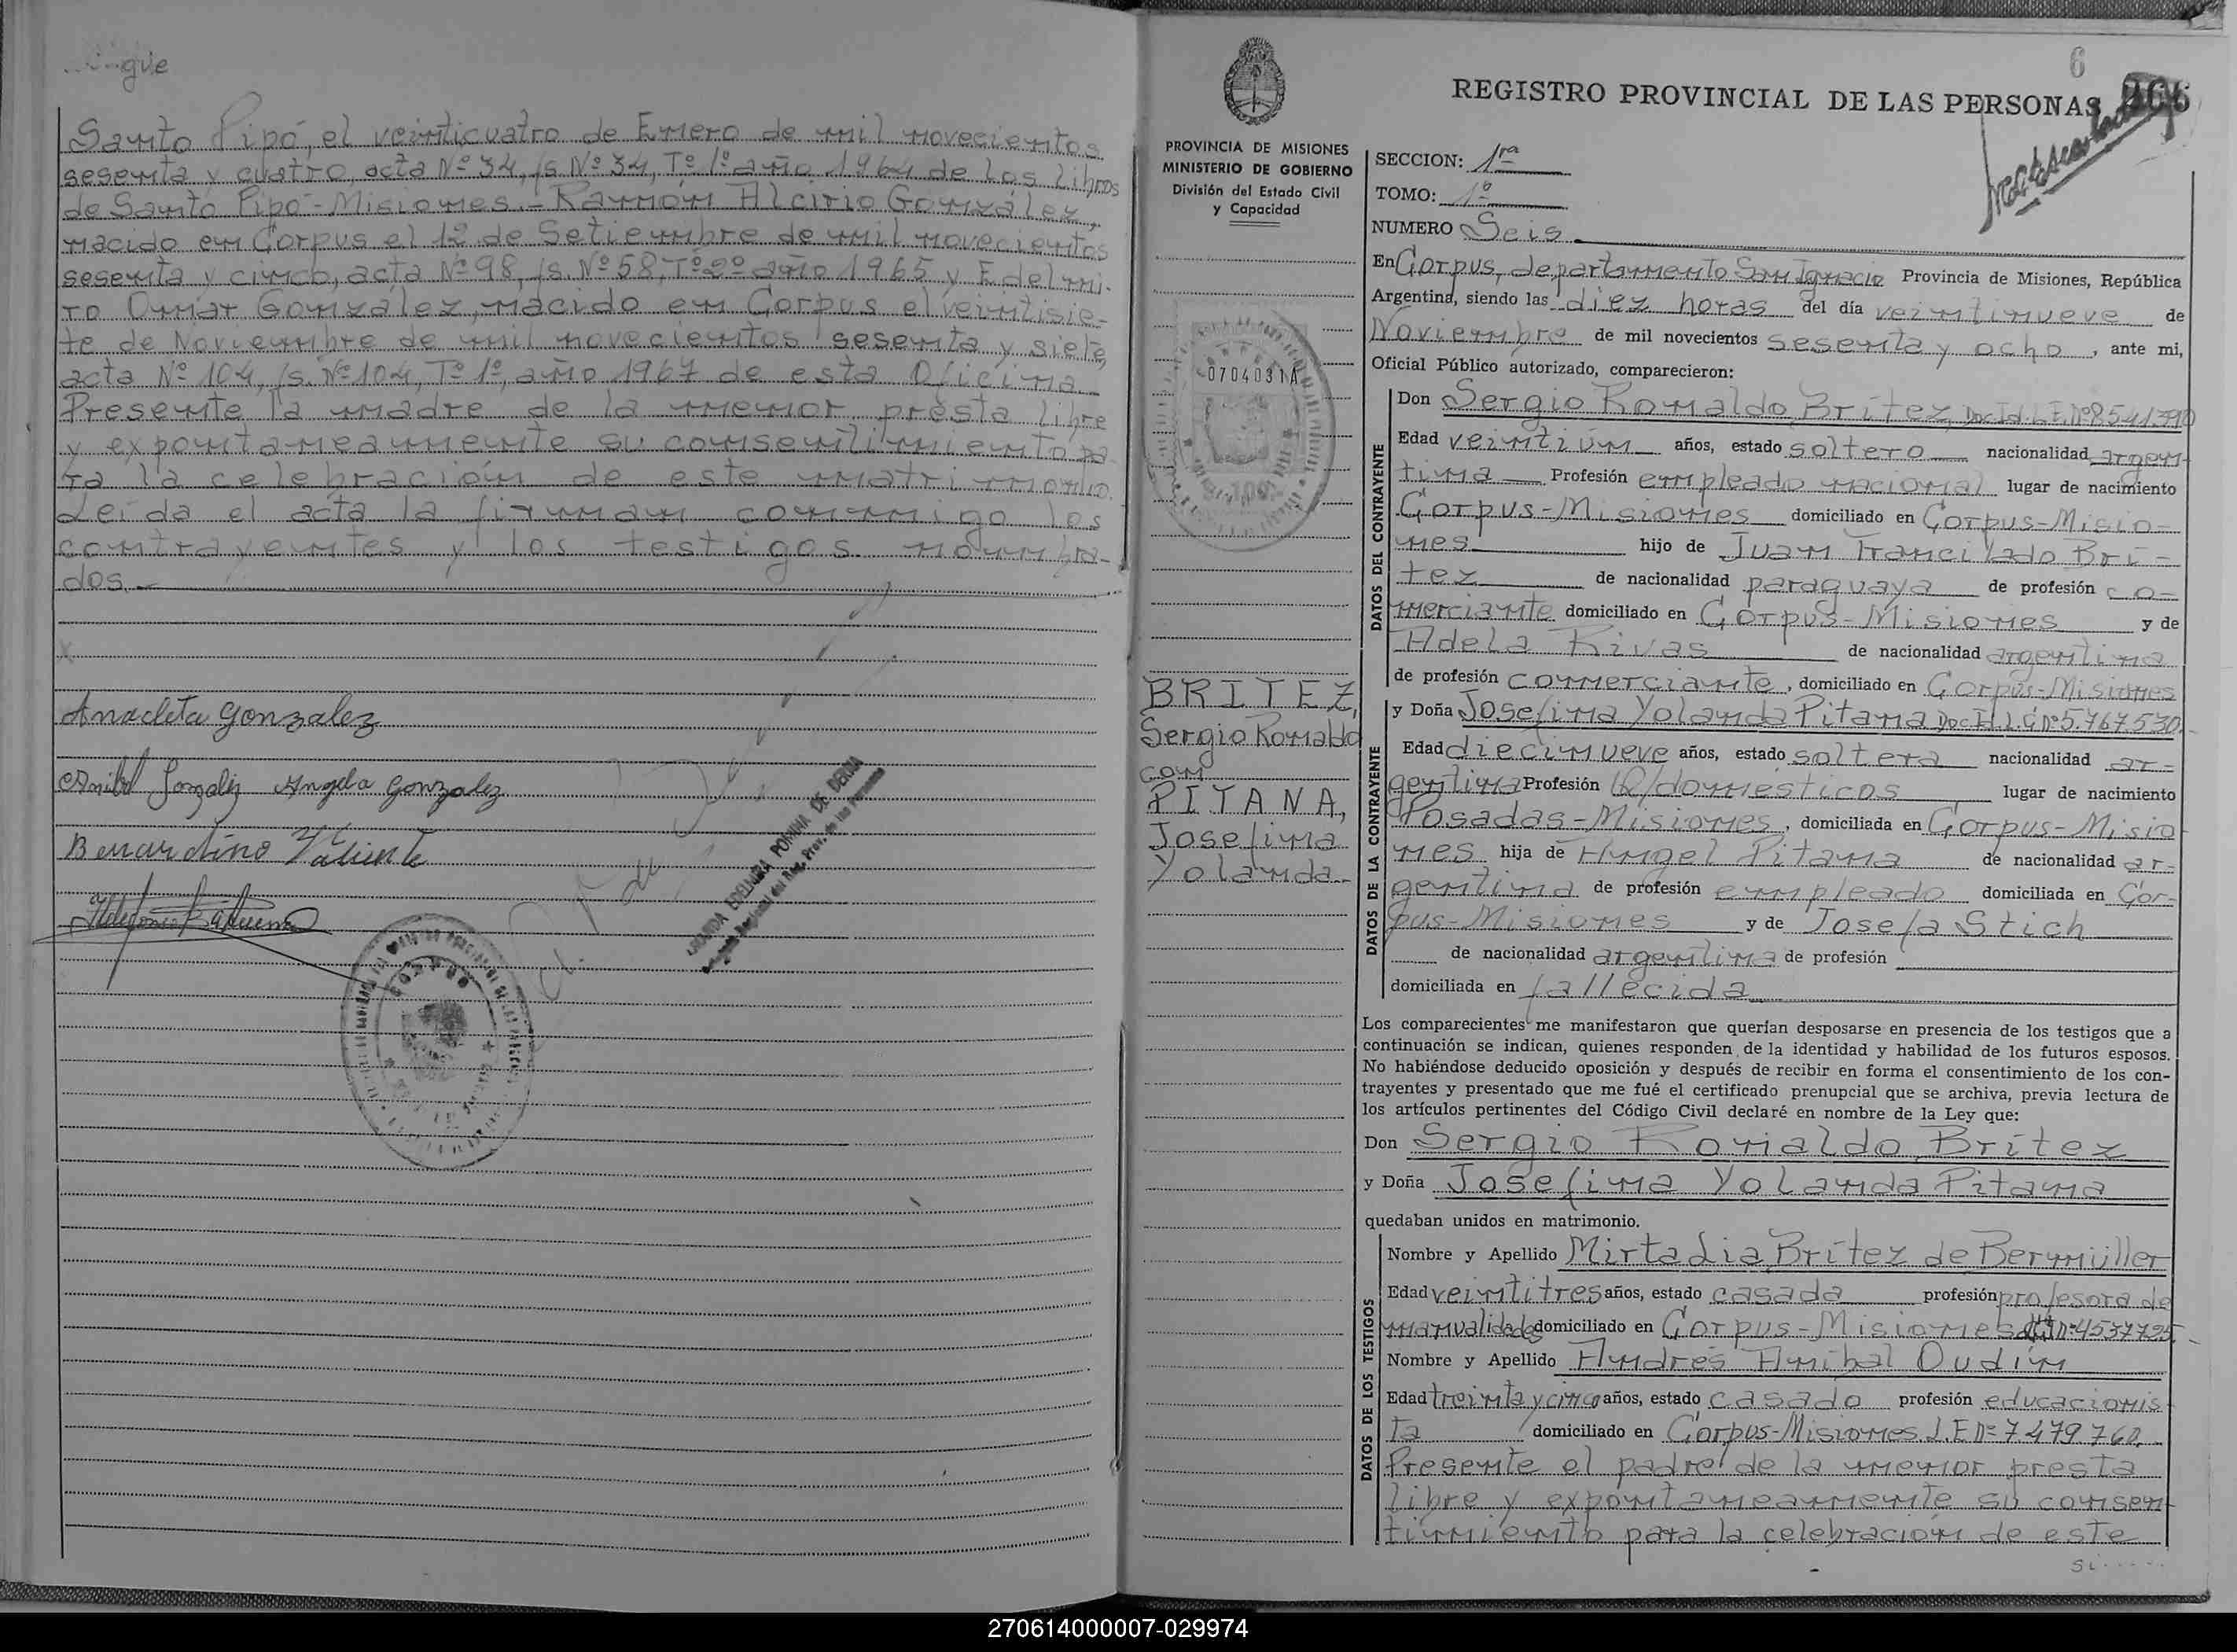 gue
Santo Pipó, el veinticuatro de Enero de mil novecientos
sesenta y cuatro, acta Nº 34, fs. Nº 34, Tº 1º año 1964 de los libros
de Santo Pipó - Misiones. - Ramón Alcirio González,
nacido en Corpus el 12 de Setiembre de mil novecientos
sesenta y cinco, acta Nº 98, fs. Nº 58, Tº 2º año 1965 y Edelmi-
ro Omar González, nacido en Corpus el veintisie-
te de Noviembre de mil novecientos sesenta y siete,
acta Nº 104, fs. Nº 104, Tº 1º, año 1967 de esta Oficina.
Presente la madre de la menor presta libre
y expontaneamente su consentimiento pa
ra la celebración de este matrimonio.
Leída el acta la firman conmigo los
contrayentes y los testigos nombra-
dos.
Anacleta Gonzalez
Anibal Gonzalez Angela Gonzalez
Bernardino Valiente
CORPUS
6
REGISTRO PROVINCIAL DE LAS PERSONAS
PROVINCIA DE MISIONES
MINISTERIO DE GOBIERNO
División del Estado Civil
y Capacidad
0704031A
SECCION: 1ra
TOMO: 1º
NUMERO Seis
En Corpus, departamento San Ignacio Provincia de Misiones, República
Argentina, siendo las diez horas del día veintinueve de
Noviembre de mil novecientos sesenta y ocho, ante mi,
Oficial Público autorizado, comparecieron:
DATOS DEL CONTRAYENTE
Don Sergio Romaldo Britez, Doc. Id. L.E. Nº 8.541.390
Edad veintiún años, estado soltero nacionalidad argen-
tina Profesión empleado nacional lugar de nacimiento
Corpus-Misiones domiciliado en Corpus-Misio-
nes hijo de Juan Francilado Brí-
tez de nacionalidad paraguaya de profesión co-
merciante domiciliado en Corpus-Misiones y de
Adela Rivas de nacionalidad argentina
de profesión comerciante, domiciliado en Corpus-Misiones
BRITEZ,
Sergio Romaldo
con
PITANA,
Josefina
Yolanda.-
DATOS DE LA CONTRAYENTE
y Doña Josefina Yolanda Pitana Doc. Id. L.C. Nº 5.767.530.-
Edad diecinueve años, estado soltera nacionalidad ar-
gentina Profesión Q/domésticos lugar de nacimiento
Posadas-Misiones, domiciliada en Corpus-Misio
nes hija de Angel Pitana de nacionalidad ar-
gentina de profesión empleado domiciliada en Cor-
pus-Misiones y de Josefa Stich
de nacionalidad argentina de profesión
domiciliada en fallecida
Los comparecientes me manifestaron que querían desposarse en presencia de los testigos que a
continuación se indican, quienes responden de la identidad y habilidad de los futuros esposos.
No habiéndose deducido oposición y después de recibir en forma el consentimiento de los con-
trayentes y presentado que me fué el certificado prenupcial que se archiva, previa lectura de
los artículos pertinentes del Código Civil declaré en nombre de la Ley que:
Don Sergio Romaldo Brítez
y Doña Josefina Yolanda Pitana
quedaban unidos en matrimonio.
DATOS DE LOS TESTIGOS
Nombre y Apellido Mirta Lia Brítez de Bermüller
Edad veintitres años, estado casada profesión profesora de
manualidades domiciliado en Corpus-Misiones Nº 4537725.-
Nombre y Apellido Andrés Anibal Oudín
Edad treinta y cinco años, estado casado profesión educacionis-
ta domiciliado en Corpus-Misiones. L.E Nº 7.479.762.
Presente el padre de la menor presta
libre y expontaneamente su consen
timiento para la celebración de este
Si
270614000007-029974